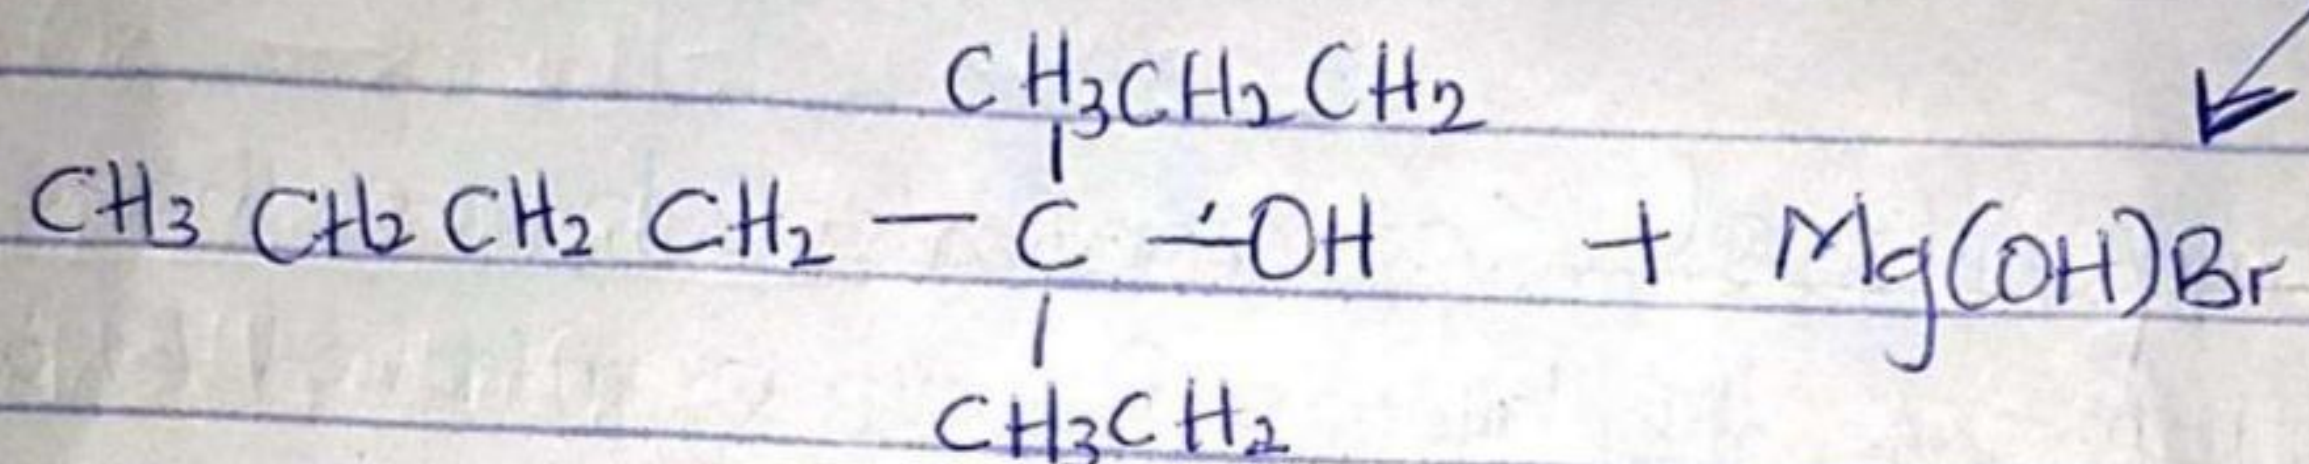 CH3CH2CH2
CH3 CH2 CH2 CH2 — C — OH + Mg(OH)Br
CH3CH2